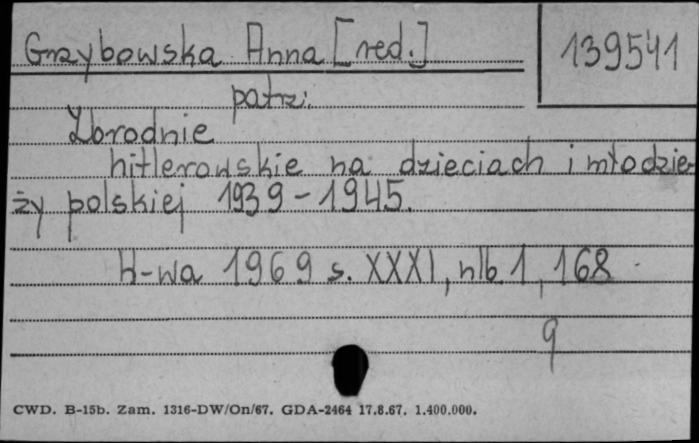 Grzybowska Anna [red.]
139541
patrz:
Zbrodnie
hitlerowskie na dzieciach i młodzie-
ży polskiej 1939-1945.
W-wa 1969 s. XXXI, nlb 1, 168
9
CWD. B-15b. Zam. 1316-DW/On/67. GDA-2464 17.8.67. 1.400.000.